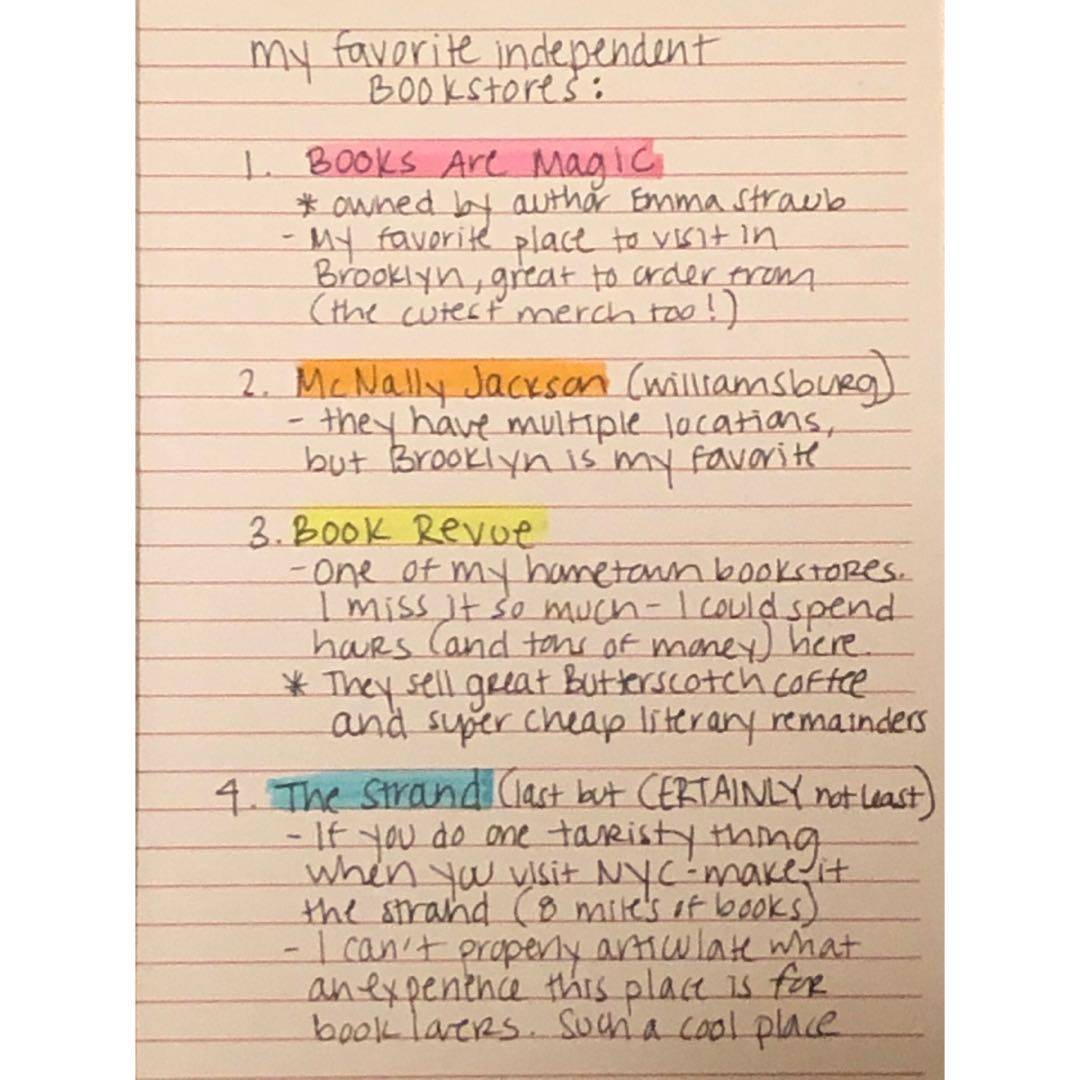 my favorite independent
Bookstores:
1. Books Are Magic
* owned by author Emma Straub
- My favorite place to visit in
Brooklyn, great to order from
(the cutest merch too!)
2. McNally Jackson (williamsburg)
- they have multiple locations,
but Brooklyn is my favorite
3. Book Revue
- One of my hometown bookstores.
I miss it so much - I could spend
hours (and tons of money) here.
* They sell great Butterscotch coffee
and super cheap literary remainders
4. The Strand (last but CERTAINLY not least)
- If you do one touristy thing
when you visit NYC - make it
the strand (8 miles of books)
- I can't properly articulate what
an experience this place is for
book lovers. Such a cool place